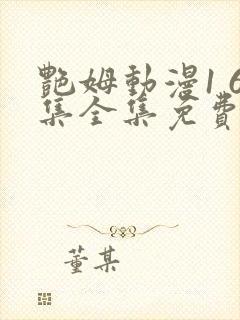 艷姆動漫1 6
集全集免費
董某